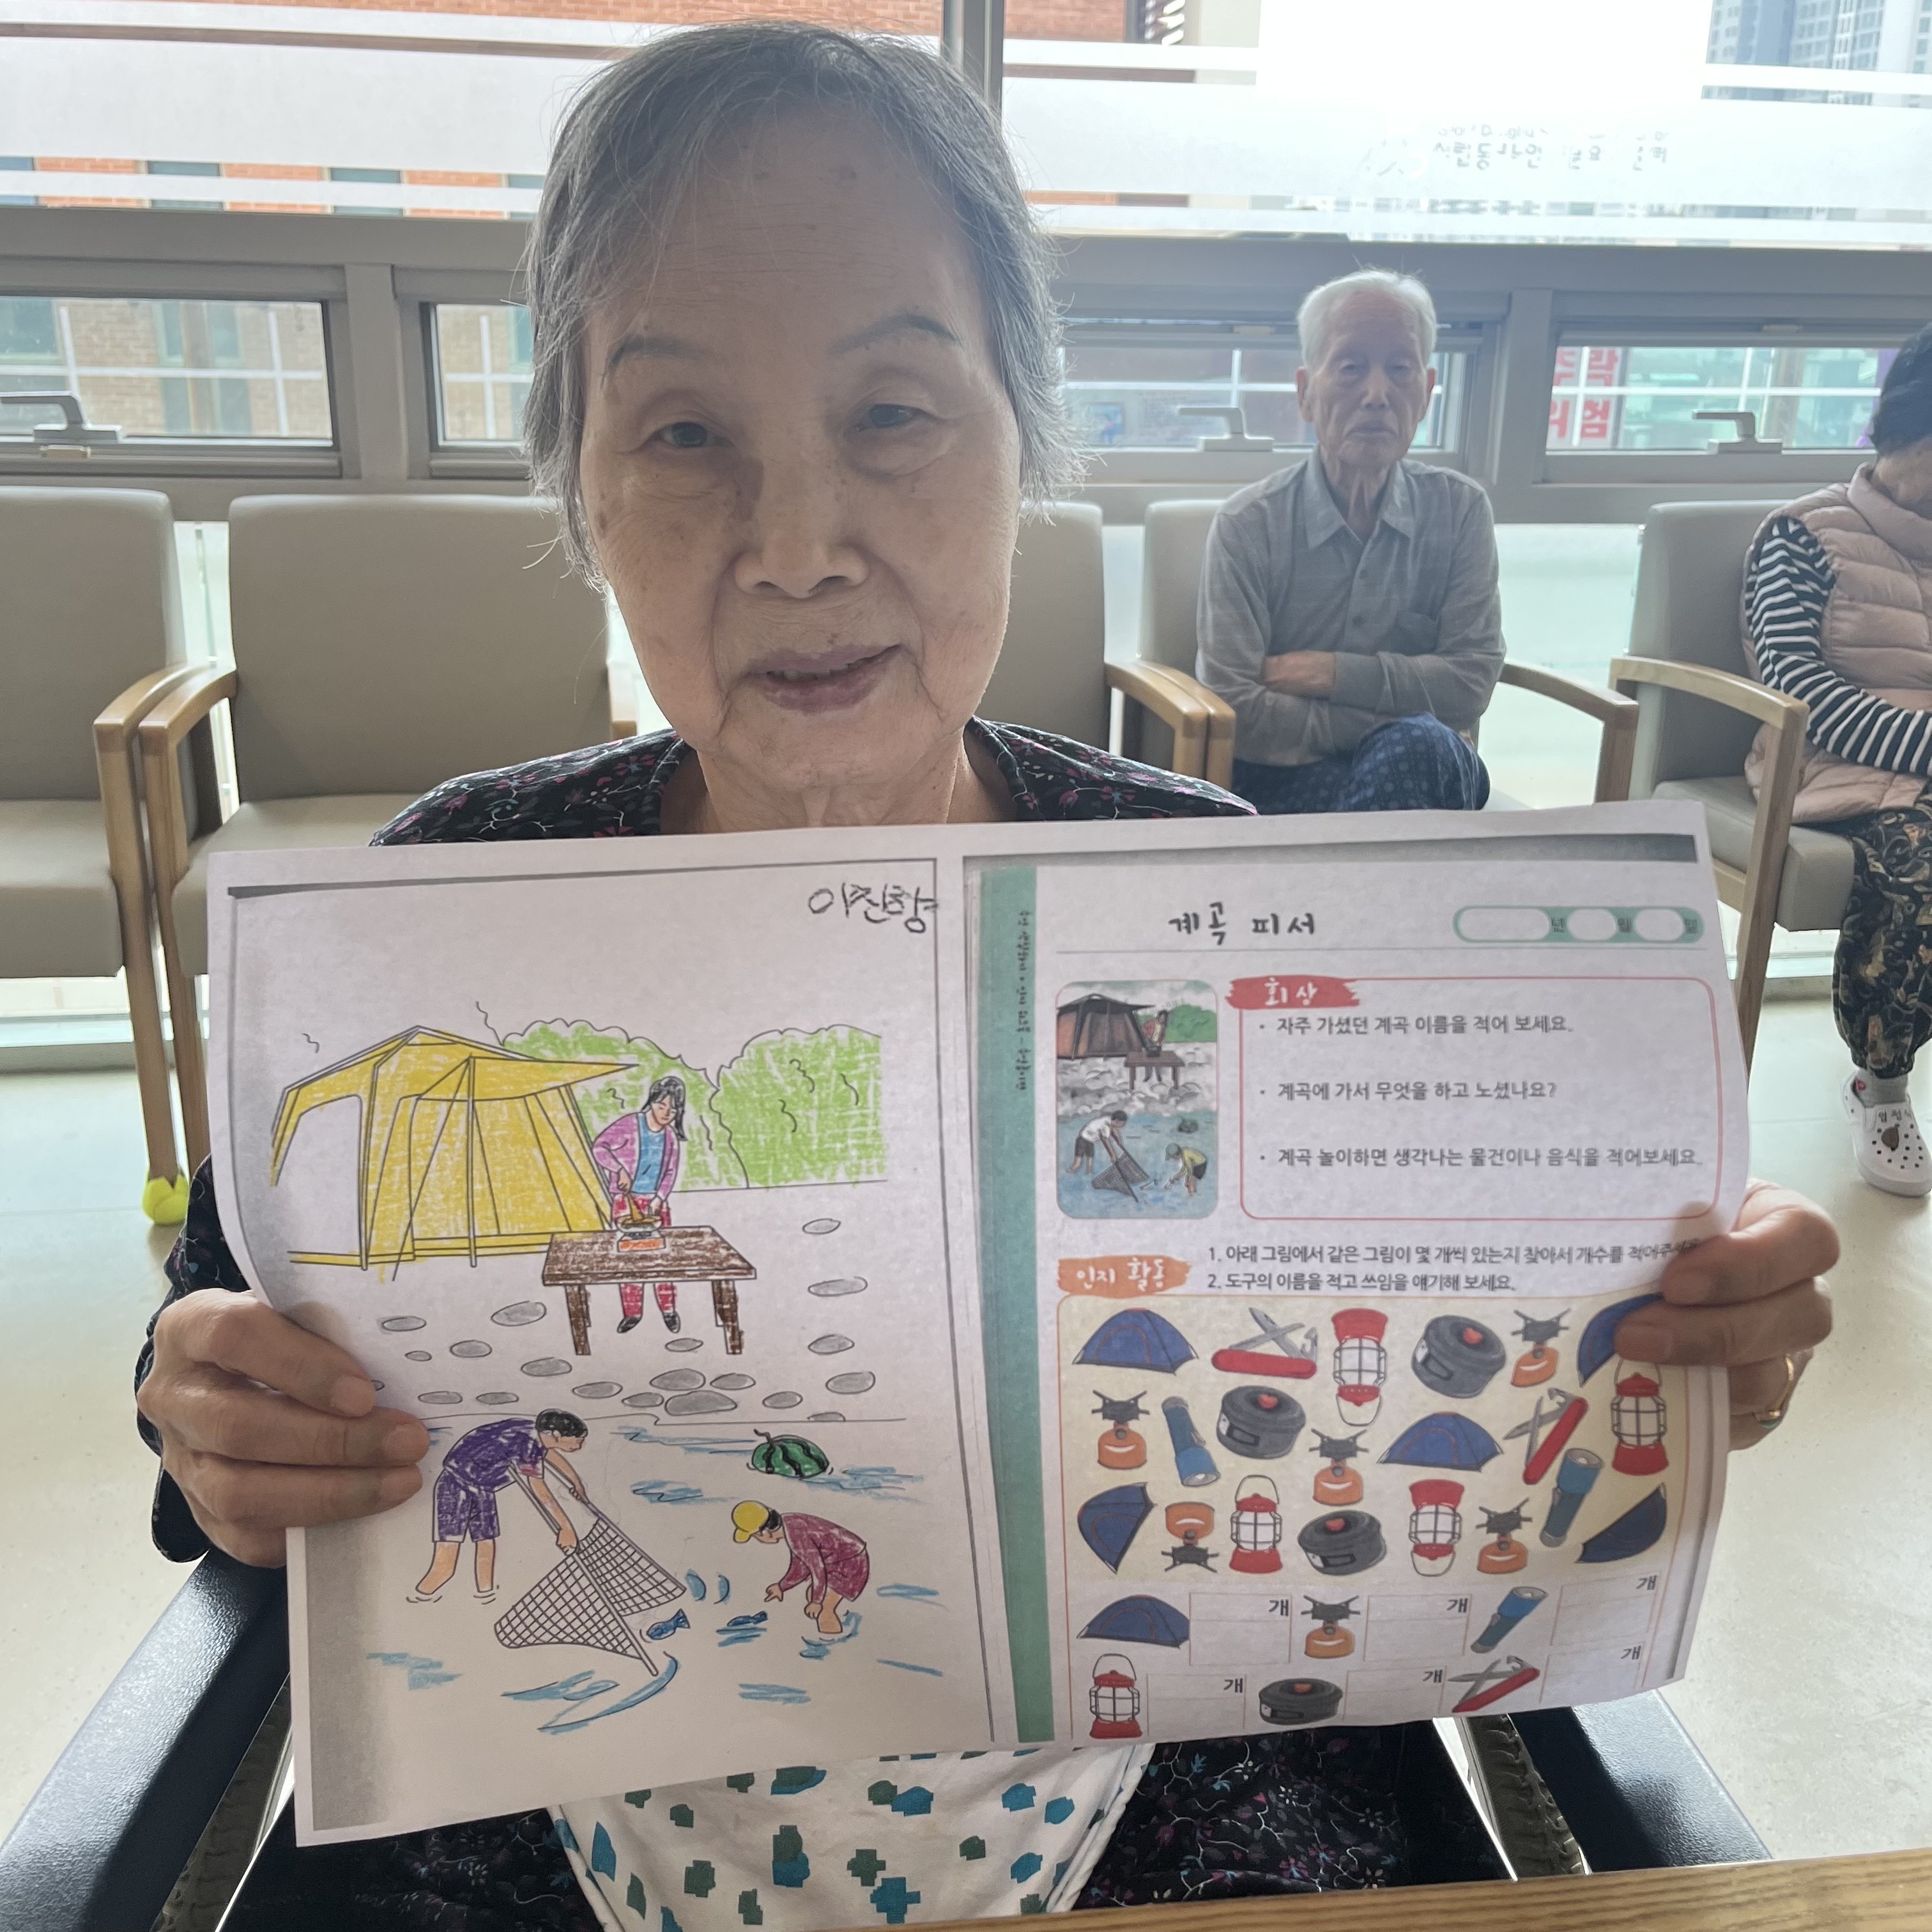 이진향
계곡 피서
년 월 일
회상
• 자주 가셨던 계곡 이름을 적어 보세요.
• 계곡에 가서 무엇을 하고 노셨나요?
• 계곡 놀이하면 생각나는 물건이나 음식을 적어보세요.
인지 활동
1. 아래 그림에서 같은 그림이 몇 개씩 있는지 찾아서 개수를 적어주세요.
2. 도구의 이름을 적고 쓰임을 얘기해 보세요.
개 개 개
개 개 개